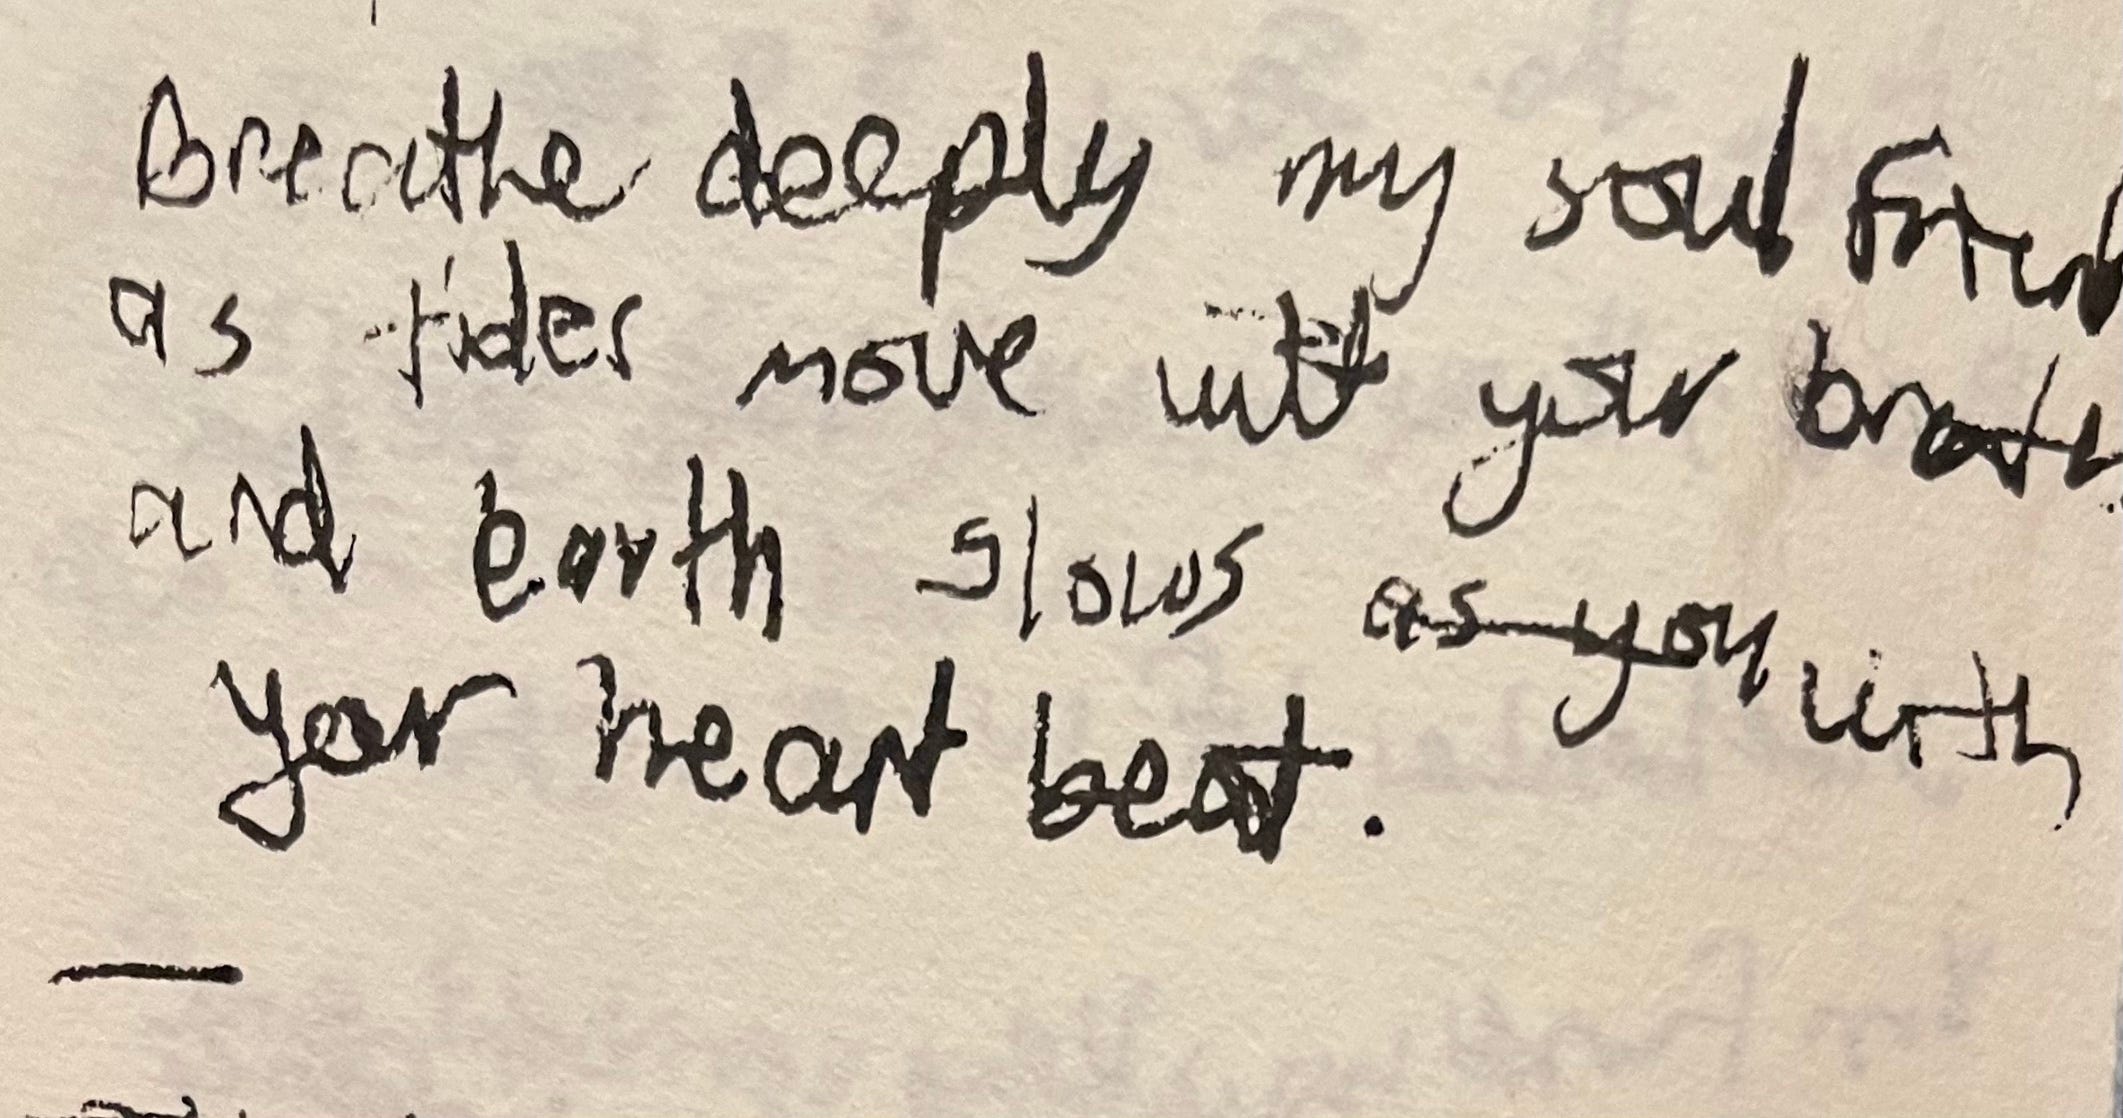 Breathe deeply my soul friend
as tides move with your breath
and earth slows as you with
your heart beat.
—